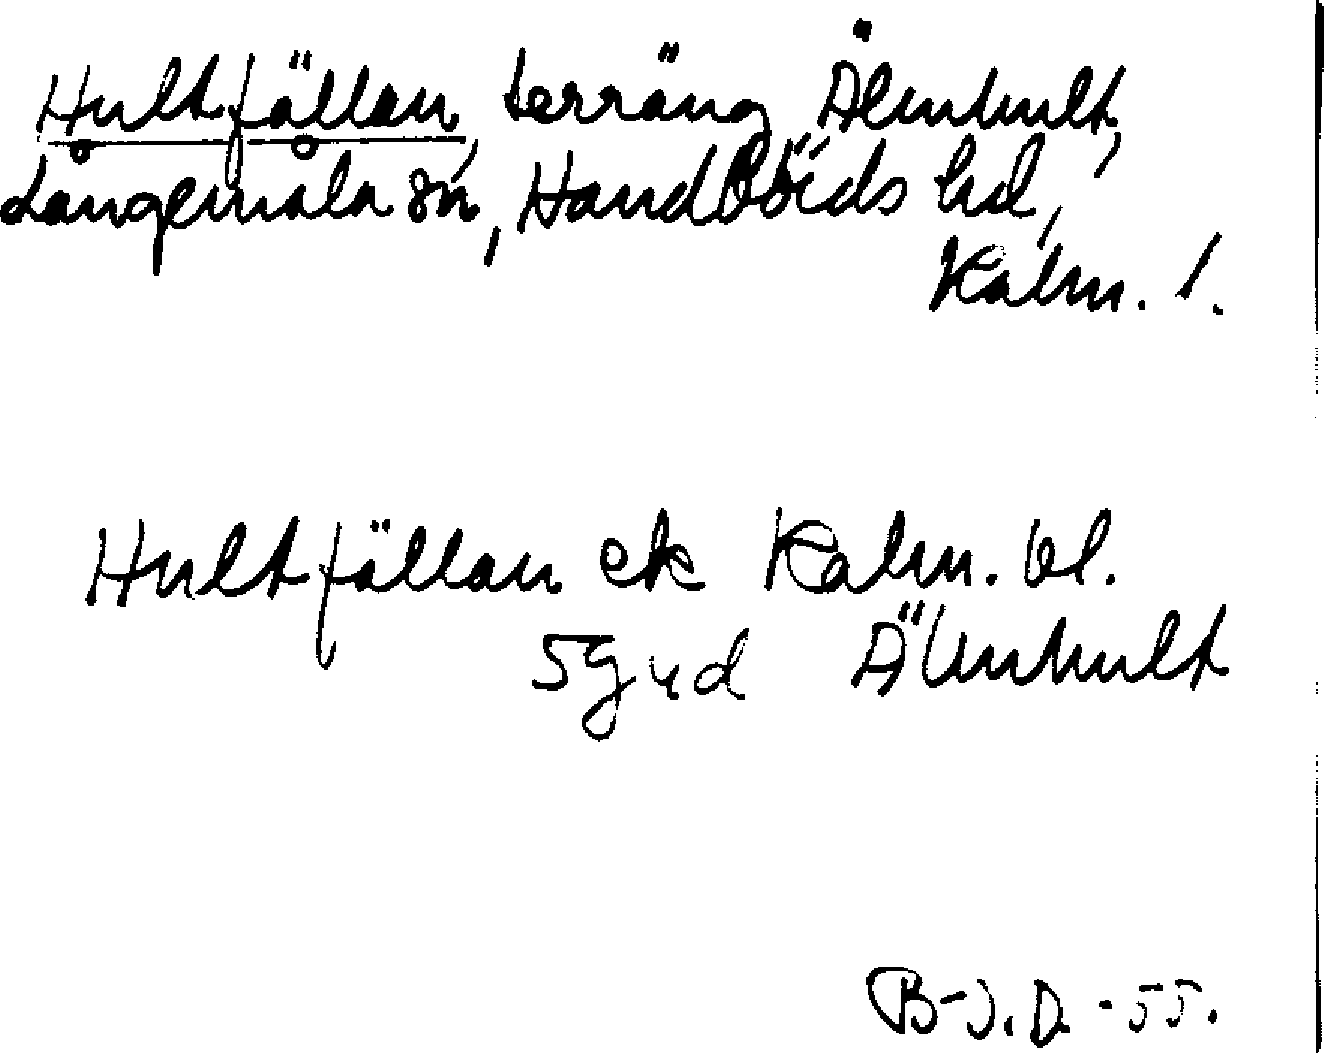 Hultfällan, terräng, Älmhult,
Långemåla sn, Handbörds hd,
Kalm. l.
Hultfällan ek Kalm. bl.
5g4d Älmhult
B-J.D. -55.